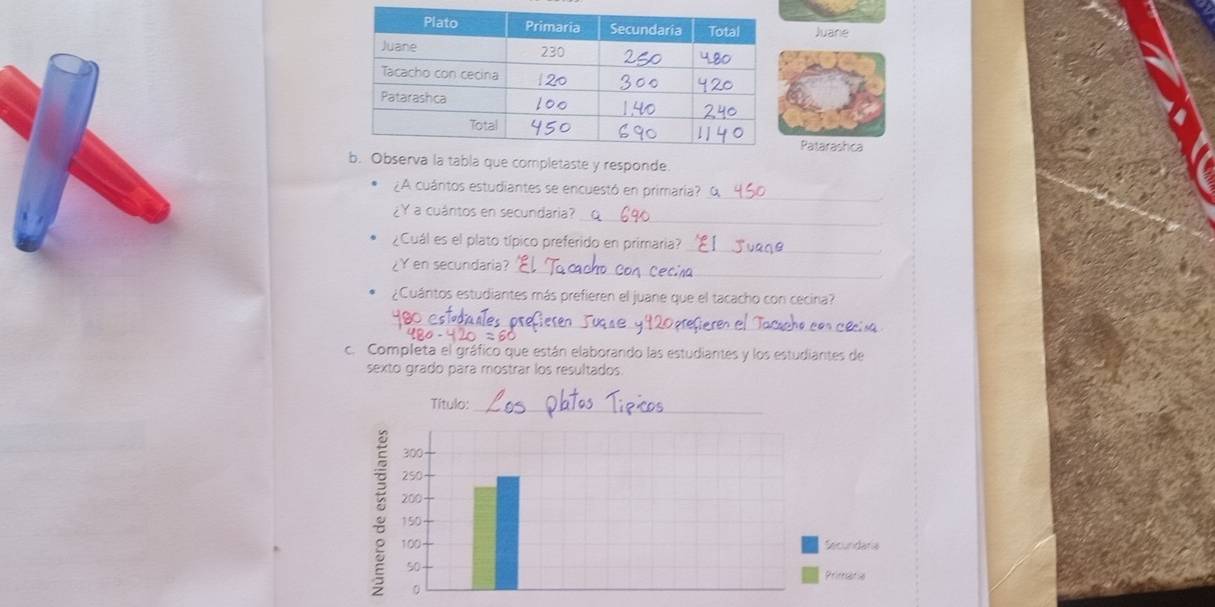 Plato Primaria Secundaria Total
Juane 230 250 480
Tacacho con cecina 120 300 420
Patarashca 100 140 240
Total 450 690 1140
Juane
Patarashca
b. Observa la tabla que completaste y responde.
• ¿A cuántos estudiantes se encuestó en primaria? a 450
¿Y a cuántos en secundaria? a 690
• ¿Cuál es el plato típico preferido en primaria? El Juane
¿Y en secundaria? El Tacacho con cecina
• ¿Cuántos estudiantes más prefieren el juane que el tacacho con cecina?
480 estodiantes prefieren Juane y 420 prefieren el Tacacho con cecina.
480 - 420 = 60
c. Completa el gráfico que están elaborando las estudiantes y los estudiantes de
sexto grado para mostrar los resultados.
Título: Los platos Tipicos
Número de estudiantes
300
250
200
150
100
50
0
Secundaria
Primaria